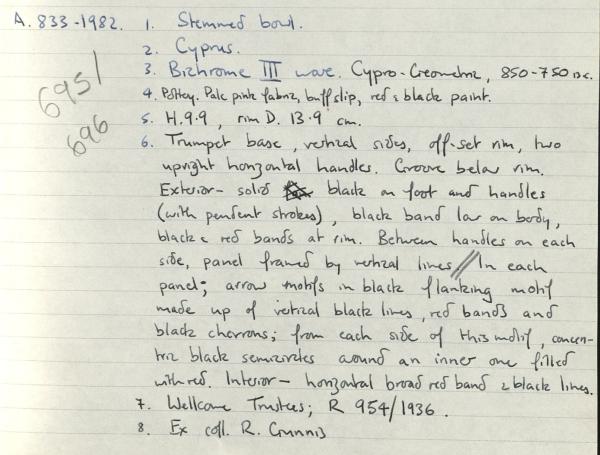 A. 833-1982. 1. Stemmed bowl.
2. Cyprus.
3. Bichrome III ware. Cypro-Geometric, 850-750 BC.
695/
696
4. Pottery. Pale pink fabric, buff slip, red & black paint.
5. H. 9.9, rim D. 13.9 cm.
6. Trumpet base, vertical sides, off-set rim, two
upright horizontal handles. Groove below rim.
Exterior - solid black on foot and handles
(with pendent strokes), black band low on body,
black & red bands at rim. Between handles on each
side, panel framed by vertical lines // In each
panel; arrow motifs in black flanking motif
made up of vertical black lines, red bands and
black chevrons; from each side of this motif, concen-
tric black semicircles around an inner one filled
with red. Interior - horizontal broad red band & black lines.
7. Wellcome Trustees; R 954/1936.
8. Ex coll. R. Gunnis